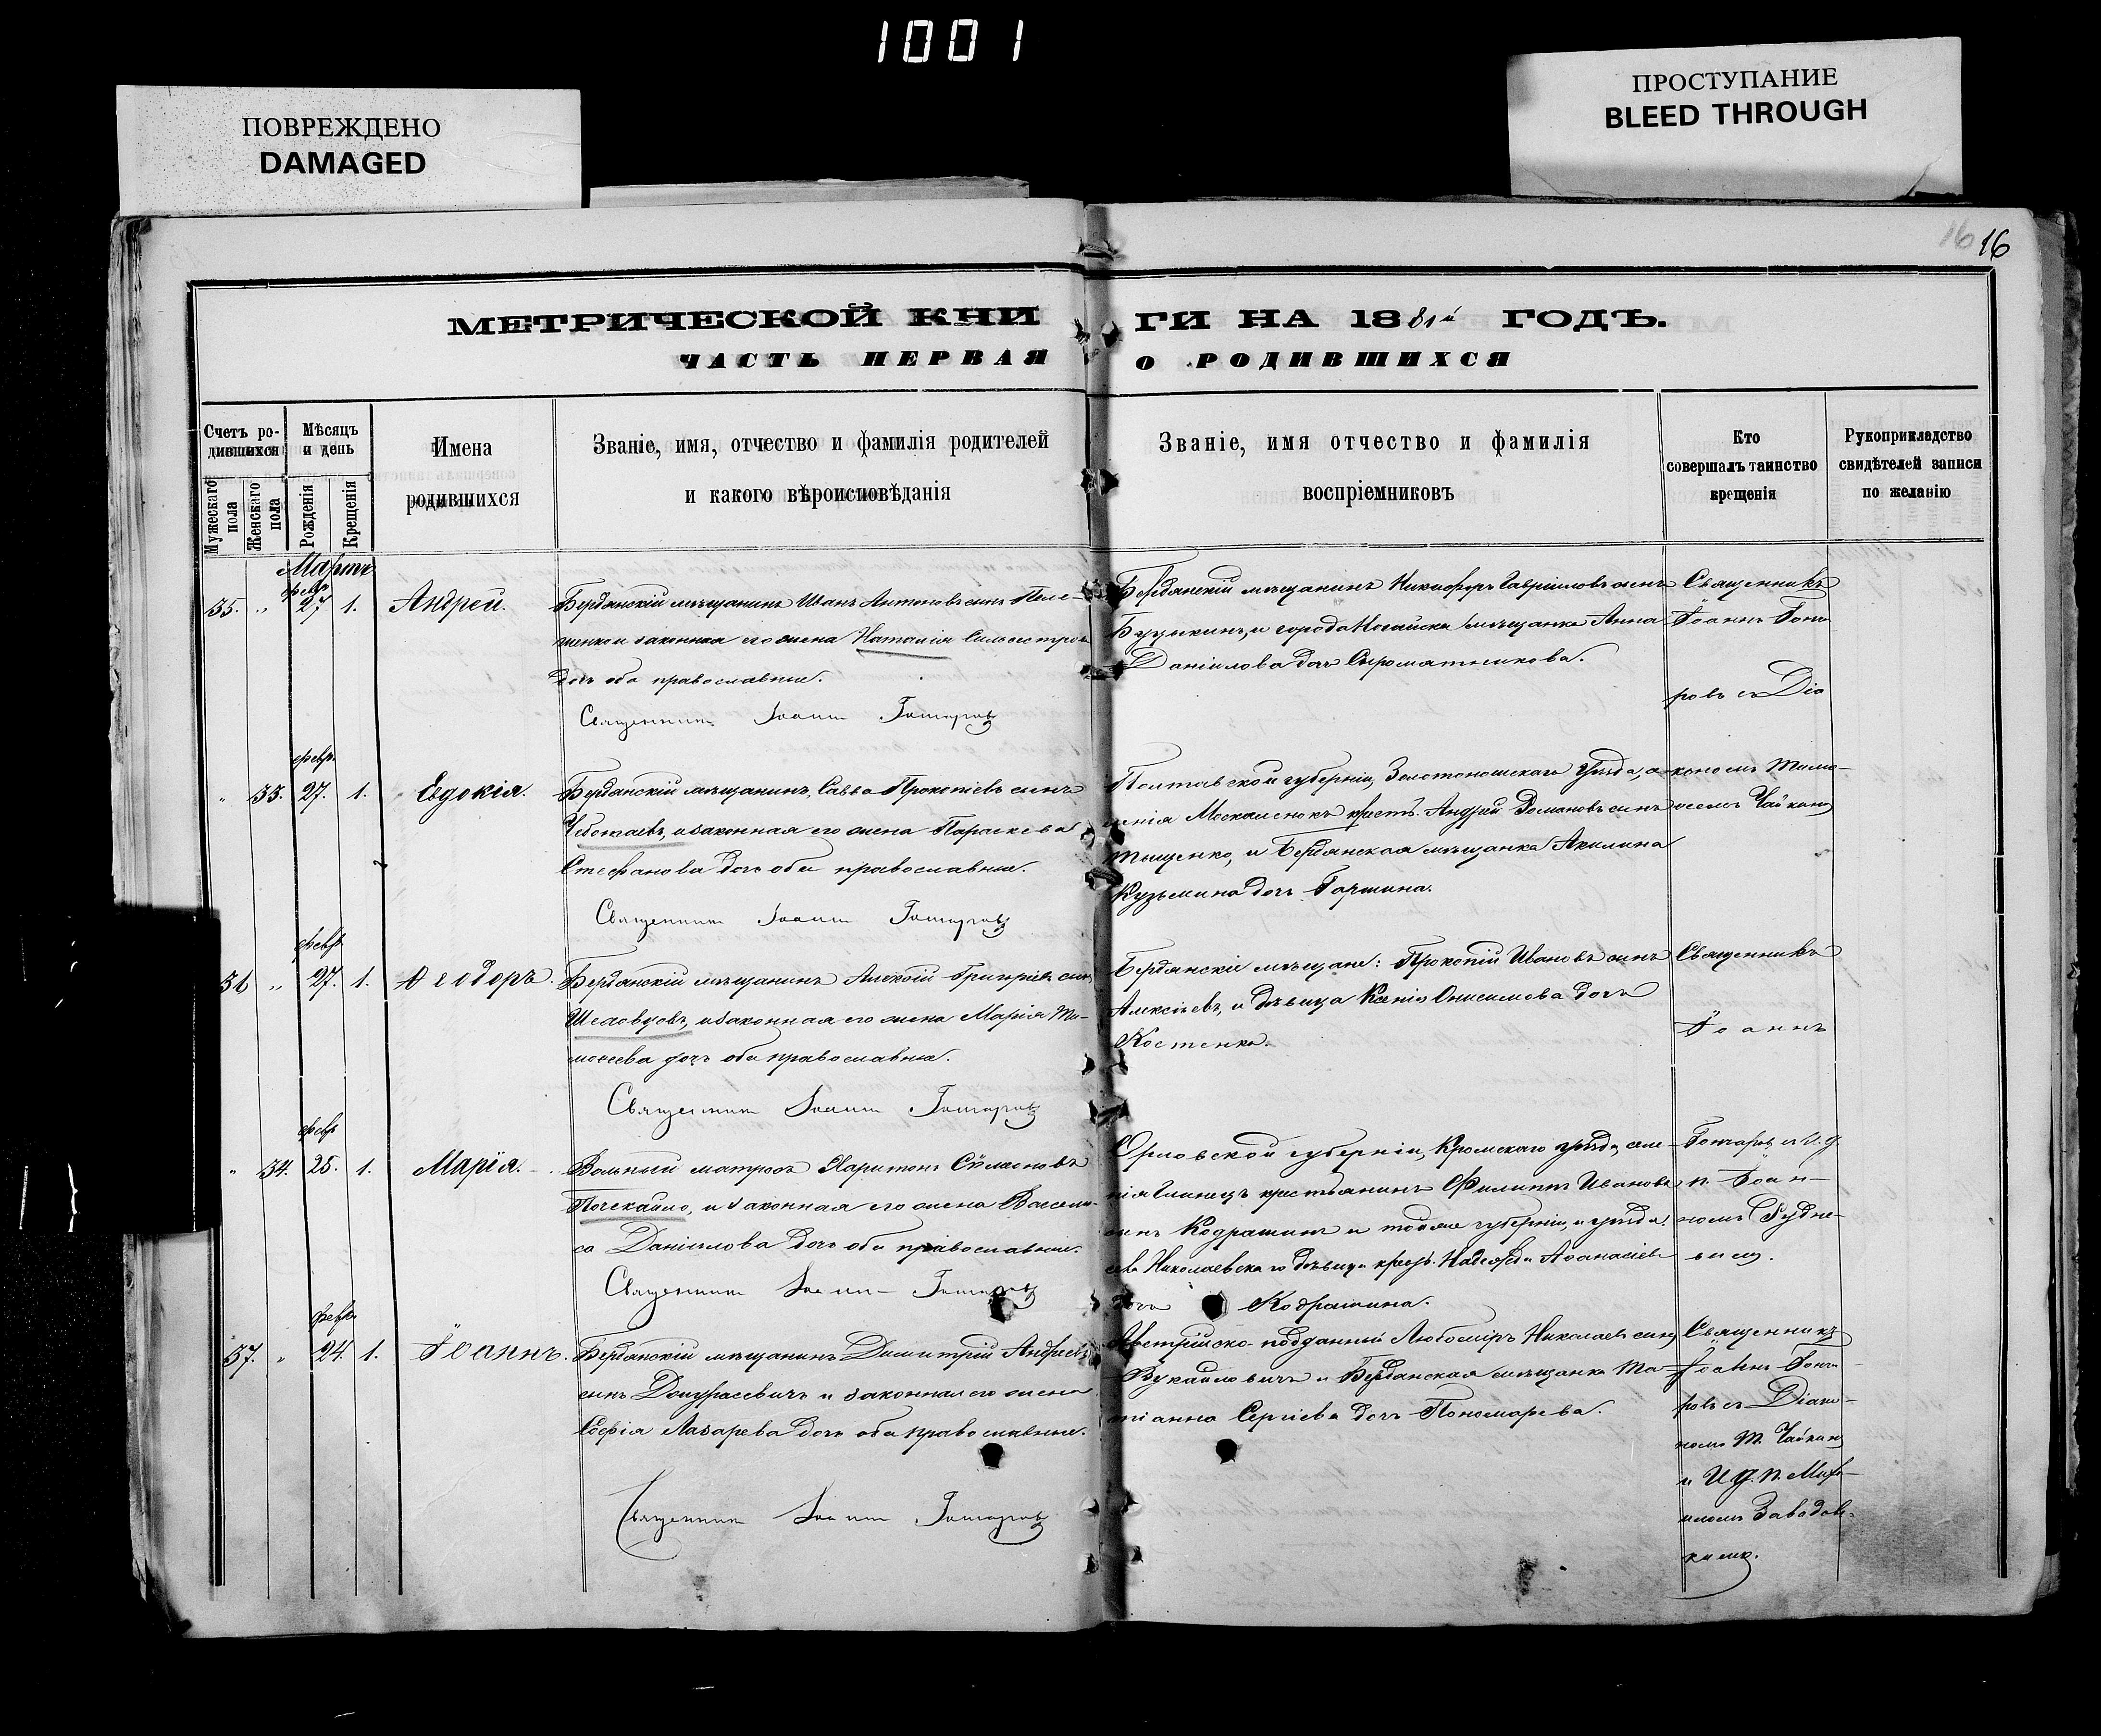 1001
ПОВРЕЖДЕНО
DAMAGED
ПРОСТУПАНИЕ
BLEED THROUGH
16 16
МЕТРИЧЕСКОЙ КНИ ГИ НА 1881й ГОДЪ.
ЧАСТЬ ПЕРВАЯ О РОДИВШИХСЯ
Счетъ ро-
дившихся
Мужескаго пола
Женскаго пола
Мѣсяцъ
и день
Рожденія
Крещенія
Имена
родившихся
Званіе, имя, отчество и фамилія родителей
и какого вѣроисповѣданія
Званіе, имя отчество и фамилія
воспріемниковъ
Кто
совершалъ таинство
крещенія
Рукоприкладство
свидѣтелей записи
по желанію
Мартъ
февр.
35. „ 27 1. Андрей.
Бердянскій мѣщанинъ Иванъ Антоновъ сынъ Пеле-
щенко и законная его жена Наталія Сильвестрова
дочь оба православные.
Священникъ Іоаннъ Гончаровъ
Бердянскій мѣщанинъ Никифоръ Гавріиловъ сынъ
и города Ногайска мѣщанка Анна
Даніилова дочь Сыромятникова.
Священникъ
Іоаннъ Гонча
ровъ съ Діа
февр.
„ 33. 27. 1. Евдокія.
Бердянскій мѣщанинъ, Савва Прокопіевъ сынъ
Чеботаевъ, и законная его жена Параскева
Стефанова дочь оба православные.
Священникъ Іоаннъ Гончаровъ
Полтавской губерніи, Золотоношскаго уѣзда, се-
ленія Москаленокъ крестъ. Андрей Романовъ сынъ
Тыщенко, и Бердянская мѣщанка Акилина
Кузьмина дочь Гаршина.
кономъ Тимо-
ѳеемъ Чайкин
февр.
36 „ 27. 1. Ѳеодоръ.
Бердянскій мѣщанинъ Алексій Григоріевъ сынъ
Шелковцовъ, и законная его жена Марія Ти-
моѳеева дочь оба православные.
Священникъ Іоаннъ Гончаровъ
Бердянскіе мѣщане: Прокопій Ивановъ сынъ
Алексѣевъ, и дѣвица Ксенія Онисимова дочь
Костенко.
Священникъ
Іоаннъ
февр
„ 34. 25. 1. Марія.
Вольный матросъ Харитонъ Сѵмеоновъ
Почекайло, и законная его жена Василис-
са Даніилова дочь оба православные.
Священникъ Іоаннъ Гончаровъ
Орловской губерніи, Кромскаго уѣзда, селе-
нія Глинецъ крестьянинъ Филиппъ Ивановъ
сынъ Кодрашинъ и тойже губерніи, и уѣзда,
села Николаевскаго дѣвица крест. Надежда Аѳанасіева
дочь Кодрашина.
Гончаровъ съ и. д.
п. Іоан-
номъ Рудне-
вымъ.
февр.
37. „ 24. 1. Іоаннъ.
Бердянскій мѣщанинъ Димитрій Андреевъ
сынъ и законная его жена
Софія Лазарева дочь оба православные.
Священникъ Іоаннъ Гончаровъ
Австрійско-подданный Любоміръ Николаевъ сынъ
Вукайловичъ и Бердянская мѣщанка Та-
тіанна Сергіева дочь Пономарева.
Священникъ
Іоаннъ Гонча
ровъ съ Діако-
номъ Т. Чайкин
и И. д. п. Миха-
иломъ Заводов-
скимъ.